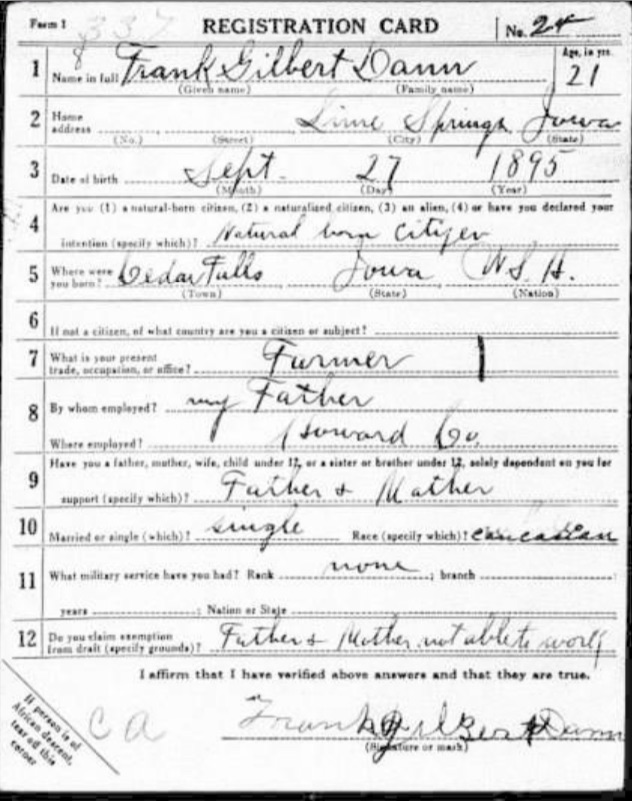 Form 1 337 REGISTRATION CARD No. 24
1 Name in full Frank Gilbert Dann Age, in yrs. 21
(Given name) (Family name)
2 Home address Lime Springs Iowa
(No.) (Street) (City) (State)
3 Date of birth Sept. 27 1895
(Month) (Day) (Year)
4 Are you (1) a natural-born citizen, (2) a naturalized citizen, (3) an alien, (4) or have you declared your
intention (specify which)? Natural born citizen
5 Where were you born? Cedar Falls Iowa U.S.A.
(Town) (State) (Nation)
6 If not a citizen, of what country are you a citizen or subject?
7 What is your present trade, occupation, or office? Farmer
8 By whom employed? my Father
Where employed? Howard Co.
9 Have you a father, mother, wife, child under 12, or a sister or brother under 12, solely dependent on you for
support (specify which)? Father & Mother
10 Married or single (which)? single Race (specify which)? caucasian
11 What military service have you had? Rank none ; branch
years ; Nation or State
12 Do you claim exemption from draft (specify grounds)? Father & Mother not able to work
I affirm that I have verified above answers and that they are true.
If person is of
African descent,
tear off this
corner
Ca
Frank Gilbert Dann
(Signature or mark)